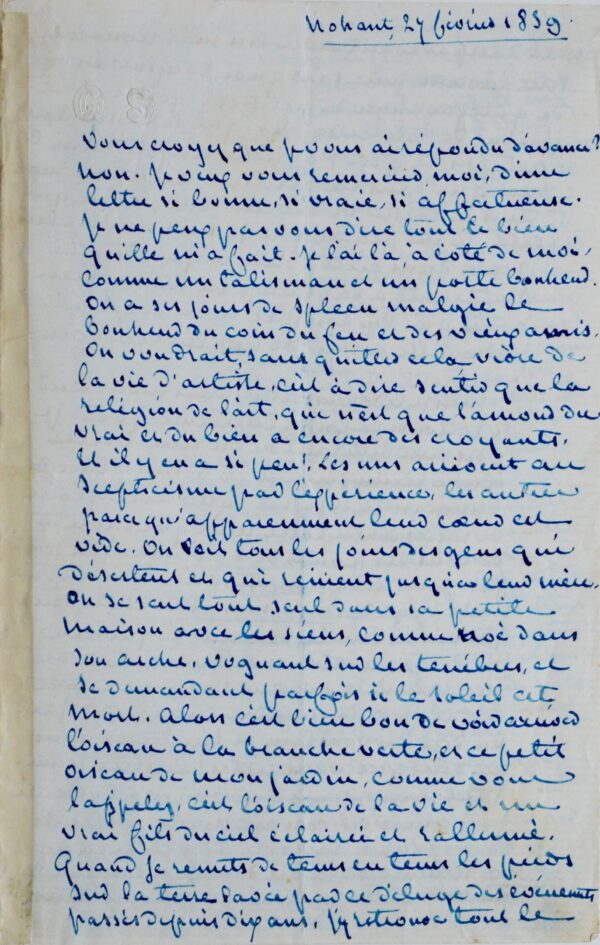 Nohant, 27 février 1859.
GS
Vous croyez que je vous ai répondu d'avance?
non. Je veux vous remercier, moi, d'une
lettre si bonne, si vraie, si affectueuse.
Je ne peux pas vous dire tout le bien
qu'elle m'a fait. Je l'ai là, à côté de moi,
comme un talisman et un porte bonheur.
On a ses jours de spleen malgré le
bonheur du coin du feu et des vieux amis.
On voudrait, sans quitter cela, vivre de
la vie d'artiste, c'est à dire sentir que la
religion de l'art, qui n'est que l'amour du
vrai et du bien a encore des croyants.
Et il y en a si peu! Les uns arrivent au
scepticisme par l'expérience, les autres
parce qu'apparemment leur cœur est
vide. On voit tous les jours des gens qui
désertent et qui renient jusqu'à leur mère.
On se sent tout seul dans sa petite
maison avec les siens, comme Noé dans
son arche, voguant sur les ténèbres, et
se demandant parfois si le soleil est
mort. Alors c'est bien bon de voir arriver
l'oiseau à la branche verte, et ce petit
oiseau de mon jardin, comme vous
l'appelez, c'est l'oiseau de la vie et un
vrai fils du ciel éclairé et rallumé.
Quand je remets de tems en tems les pieds
sur la terre lavée par ce déluge des événements
passés depuis dix ans, j'y retrouve tout le